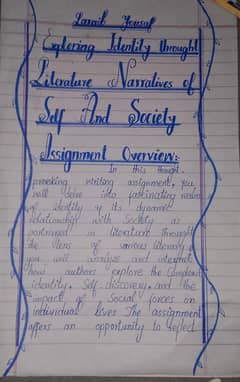 Laraib Yousaf
Exploring Identity throught
Literature Narratives of
Self And Society
Assignment Overview:-
In this thought
provoking writing assignment, you
will delve into fascinating realm
of identity & its dynamic
relationship with Society as
portrayed in literature throught
the lens of various literary
you will analyze and interpret
how authors explore the complexi
identity, Self-discovery, and the
impact of Social forces on
individual lives The assignment
offers an opportunity to reflect